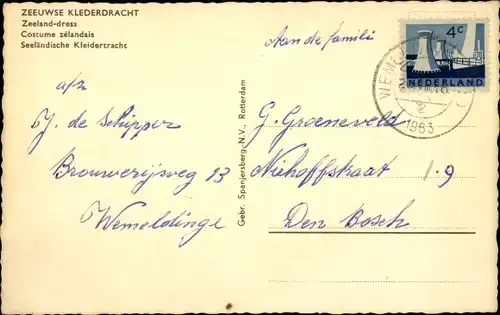 ZEEUWSE KLEDERDRACHT
Zeeland-dress
Costume zélandais
Seeländische Kleidertracht
4c
NEDERLAND
WEMEL
1963
Aan de familie
afz
Brouwerijsweg 13
Wemeldinge
Gebr. Spanjersberg N.V., Rotterdam
G. Groeneveld
Niehoffstraat 19
Den Bosch